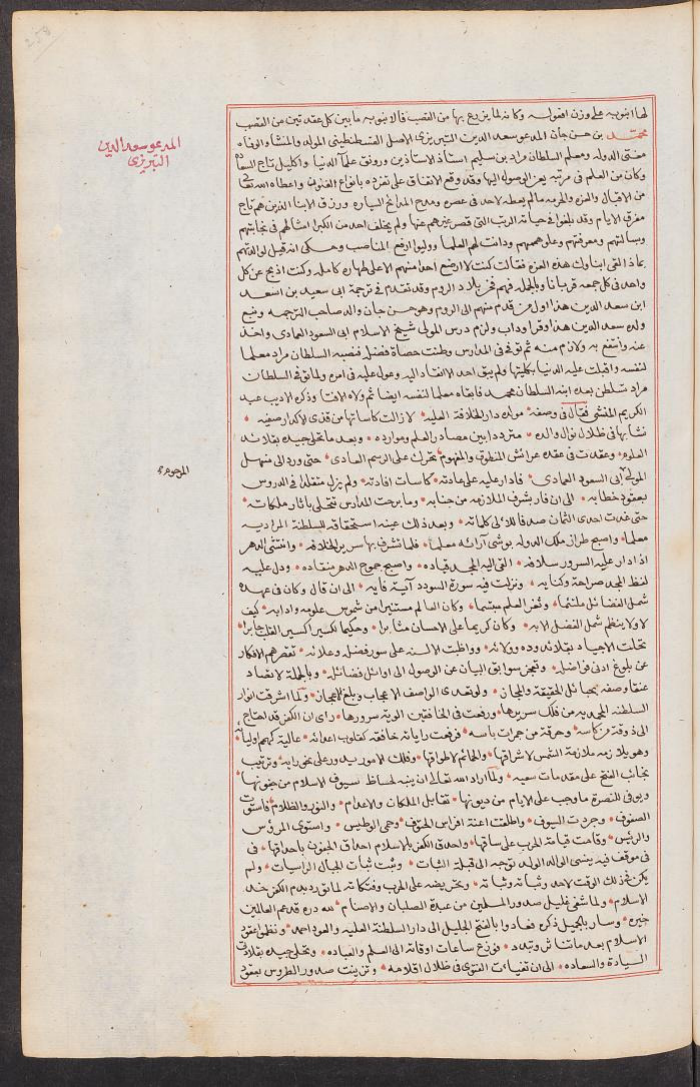 258
المدعو سعد الدين
التبريزى
لها انبوبه على وزن افعوله وكانه لما يزرع بها من القصب فالانبوبه مابين كل عقدتين من القصب
محمد بن حسن جان المدعو سعد الدين التبريزى الاصل القسطنطينى المولد والمنشأ والوفاه
مفتى الدوله ومعلم السلطان مراد بن سليم استاذ الاستاذين ورونق علمآ الدنيا واكليل تاج
وكان من العلم فى مرتبه يعز الوصول اليها وقد وقع الاتفاق على تفرده بانواع الفنون واعطاه الله تعالى
من الاقبال والعزه والحرمه مالم يعطه لاحد فى عصره ومدح المدائح السياره ورزق الابنا الذين هم تاج
مفرق الايام وقد بلغوا فى حياته الرتب التى قصر غيرهم عنها ولم يخلف احد من الكبرا امثالهم فى نجابتهم
وبسالتهم ومعرفتهم وعلو هممهم ودانت لهم العلما وولوا ارفع المناصب وحكى انه قيل لوالدتهم
بماذا لقى ابناوك هذه العزه فقالت كنت لا ارضع احدا منهم الا على طهاره كامله وكنت اذبح عن كل
واحد فى كل جمعه قربانا وبالجله فهم فخر بلاد الروم وقد تقدم فى ترجمة ابى سعيد بن اسعد
ابن سعد الدين هذا اول من قدم منهم الى الروم وهو حسن جان والد صاحب الترجمه ونبغ
ولده سعد الدين هذا وقرا وداب ولزم درس المولى شيخ الاسلام ابى السعود العمادى واخذ
عنه وانتفع به ولازم منه ثم ترقى فى المدارس وطنت حصاة فضله فنصبه السلطان مراد معلما
لنفسه واقبلت عليه الدنيا بكليتها ولم يبق احد الا انقاد اليه وعول عليه فى امره ولما توفى السلطان
مراد تسلطن بعده ابنه السلطان محمد فابقاه معلما لنفسه ايضا ثم ولاه الافتا وذكره الاديب عبد
الكريم المنشى فقال فى وصفه مولده دار الخلافة العليه لا زالت كاساتها من قذى الاكدار صفيه
نشا بها فى ظلال نوال والده مترددا بين مصادر العلم وموارده وبعد ما تحلى جيده بقلائد
العلوم وعقدت فى عقده عرائس المنطوق والمفهوم تحرك على الرسم العادى حتى ورد الى منهل
المولى ابى السعود العمادى فادار عليه على عادته كاسات افادته ولم يزل متقلدا فى الدروس
المرحوم
بعقود خطابه الى ان فاز بشرف الملازمه من جنابه وما برحت المدارس تتحلى باثار ملكاته
حتى غدت احدى الثمان صدفا للالى كلماته وبعد ذلك عينه استحقاقه للسلطنة المراديه
معلما واصبح طراز ملك الدوله بوشى آرائه معلما فلما تشرف بها سرير الخلافه وانتشى الدهر
اذ ادار عليه السرور سلافه القى اليه المجد قياده واصبح جموح الدهر منقاده ودل عليه
لفظ المجد صراحة وكنايه ونزلت فيه سورة السودد آية فآيه الى ان قال وكان فى عهده
شمل الفضائل ملتئما وثغر العلم مبتسما وكان العالم مستنيرا من شموس علومه وادابه كيف
لا ولا ينظم شمل الفضل الا به وكان كريما على الاحسان مثابرا وحكيما لكسير اكسير القلب جابرا
تحلت الاجياد بقلائد وده وولائه وواظبت الالسنه على سور فضله وعلائه تقصر هم الافكار
عن بلوغ ادنى فواضله وتعجز سوابق البيان عن الوصول الى اوائل فضائله وبالجملة لا تصاد
عنقا وصفه بحبائل الحقيقة والمجاز ولو تعدى الواصف الاعجاب وبلغ الاعجاز ولما اشرقت انوار
السلطنه المحمديه من فلك سريرها ورفعت فى الخافقين الوية سرورها راى ان الكفر قد احتاج
الى ذوقة من كاسه وحرقة من جمرات باسه فرفعت راياته خافقه كقلوب اعدائه عالية كهمم اوليائه
وهو يلازمه ملازمة الشمس لاشراقها والحمائم لاطواقها وفلك الامور يدور على محور رايه وترتيب
نجائب الفتح على مقدمات سعيه ولما اراد الله تعالى ان ينبه لحاظ سيوف الاسلام من جفونها
ويوفى للنصرة ما وجب على الايام من ديونها تقابل الملكان والاعدام والنور والظلام فاستوت
الصفوف وجردت السيوف واطلقت اعنة افراس الحتوف وحمى الوطيس واستوى المرؤس
والرئيس وقامت قيامة الحرب على ساقها واحدق الكفر بالاسلام احداق الجفون باحداقها فى
فى موقف فيه ينسى الوالد الولد توجه الى قبلة الثبات وثبت ثبات الجبال الراسيات ولم
يكن فى ذلك الوقت لاحد وثباته وثباته وتحريضه على الحرب وفتكاته لما توردم الكفر خد
الاسلام ولما شفى غليل صدور المسلمين من عبدة الصلبان والاصنام لله دره قد عم العالمين
خيره وسار بالجميل ذكره فعادوا بالفتح الجليل الى دار السلطنة العليه والعود احمد ونظموا عقود
الاسلام بعد ما تناثر وتبدد فوزع ساعات اوقاته الى العلم والعباده وتحلى جيده بقلائد
السيادة والسعاده الى ان تفيات الفتوى فى ظلال اقلامه وتزينت صدور الطروس بعقود